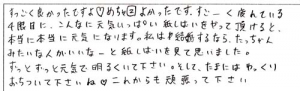 すっごく良かったですよ♡めちゃ②よかったです。すごーく疲んでいる
4限目に、こんなに元気いっぱい紙しばいをやって頂けると、
本当に本当に元気になります。私は結婚するなら、たっちゃん
みたいな人がいいなーと紙しばいを見て思いました。
ずっとずっと元気で明るくいて下さい。そして、たまにはゆっくり
おちついて下さいね♡これからも頑張って下さい